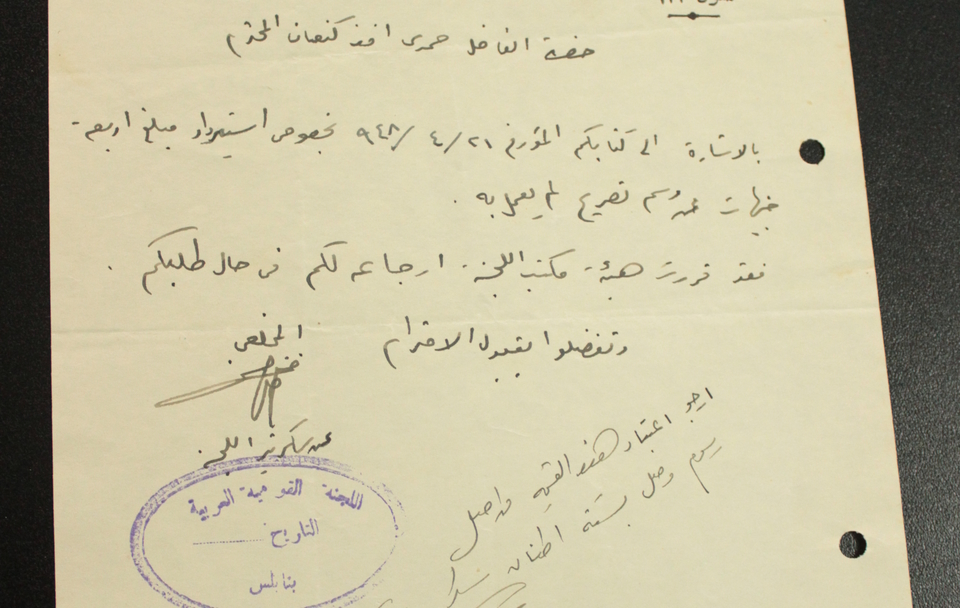 حضرة الفاضل حمدي افندي كنعان المحترم
بالاشارة الى كتابكم المؤرخ ٢١/٤/٩٤٨ بخصوص استرداد مبلغ اربعة
جنيهات عن رسم تصريح لم يعمل به .
فقد قررت هيئة مكتب اللجنة ارجاعه لكم في حال طلبكم .
وتفضلوا بقبول الاحترام
المخلص
عن سكرتير اللجنة
اللجنة القومية العربية
التاريخ
بنابلس
ارجو اعتبار هذه القيمة من اصل
رسوم وصل بستة اطنان